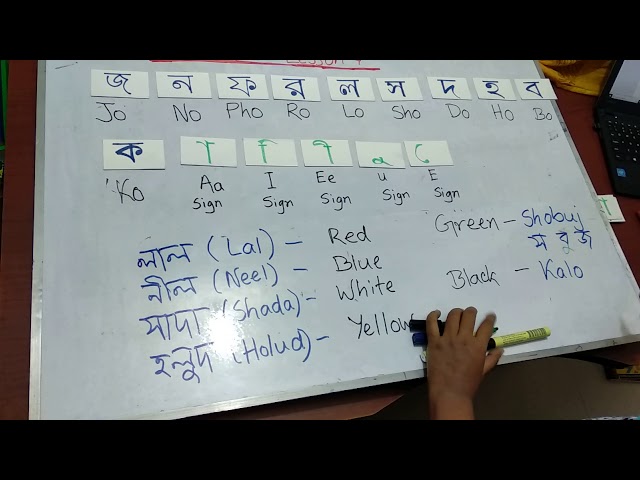 জ ন ফ র ল স দ হ ব
Jo No Pho Ro Lo Sho Do Ho Bo
ক া ি ী ু ে
Ko Aa Sign I Sign Ee Sign u Sign E Sign
লাল (Lal) - Red
নীল (Neel) - Blue
সাদা (Shada) - White
হলুদ (Holud) - Yellow
Green - Shobuj
সবুজ
Black - Kalo